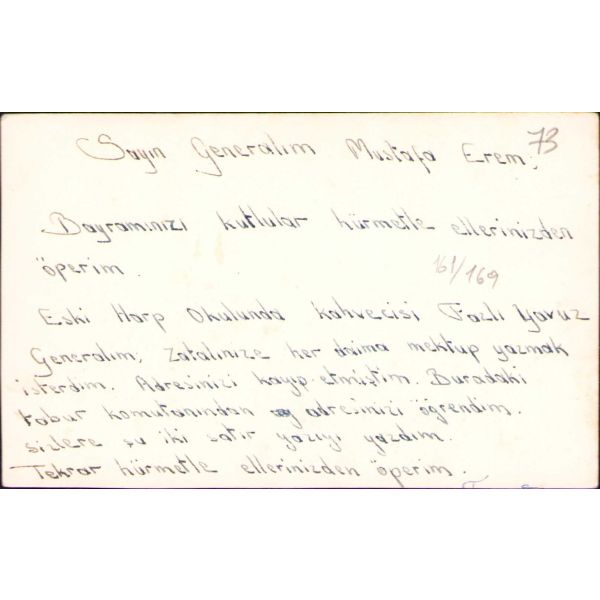 73
Sayın Generalım Mustafa Erem:
Bayramınızı kutlular hürmetle ellerinizden
öperim.
161/169
Eski Harp Okulunda kahvecisi Fazlı Yavuz
Generalım, Zatalinize her daima mektup yazmak
isterdim. Adresinizi kayıp etmiştim. Buradaki
tabur komutanından adresinizi öğrendim.
sizlere şu iki satır yazıyı yazdım.
Tekrar hürmetle ellerinizden öperim.